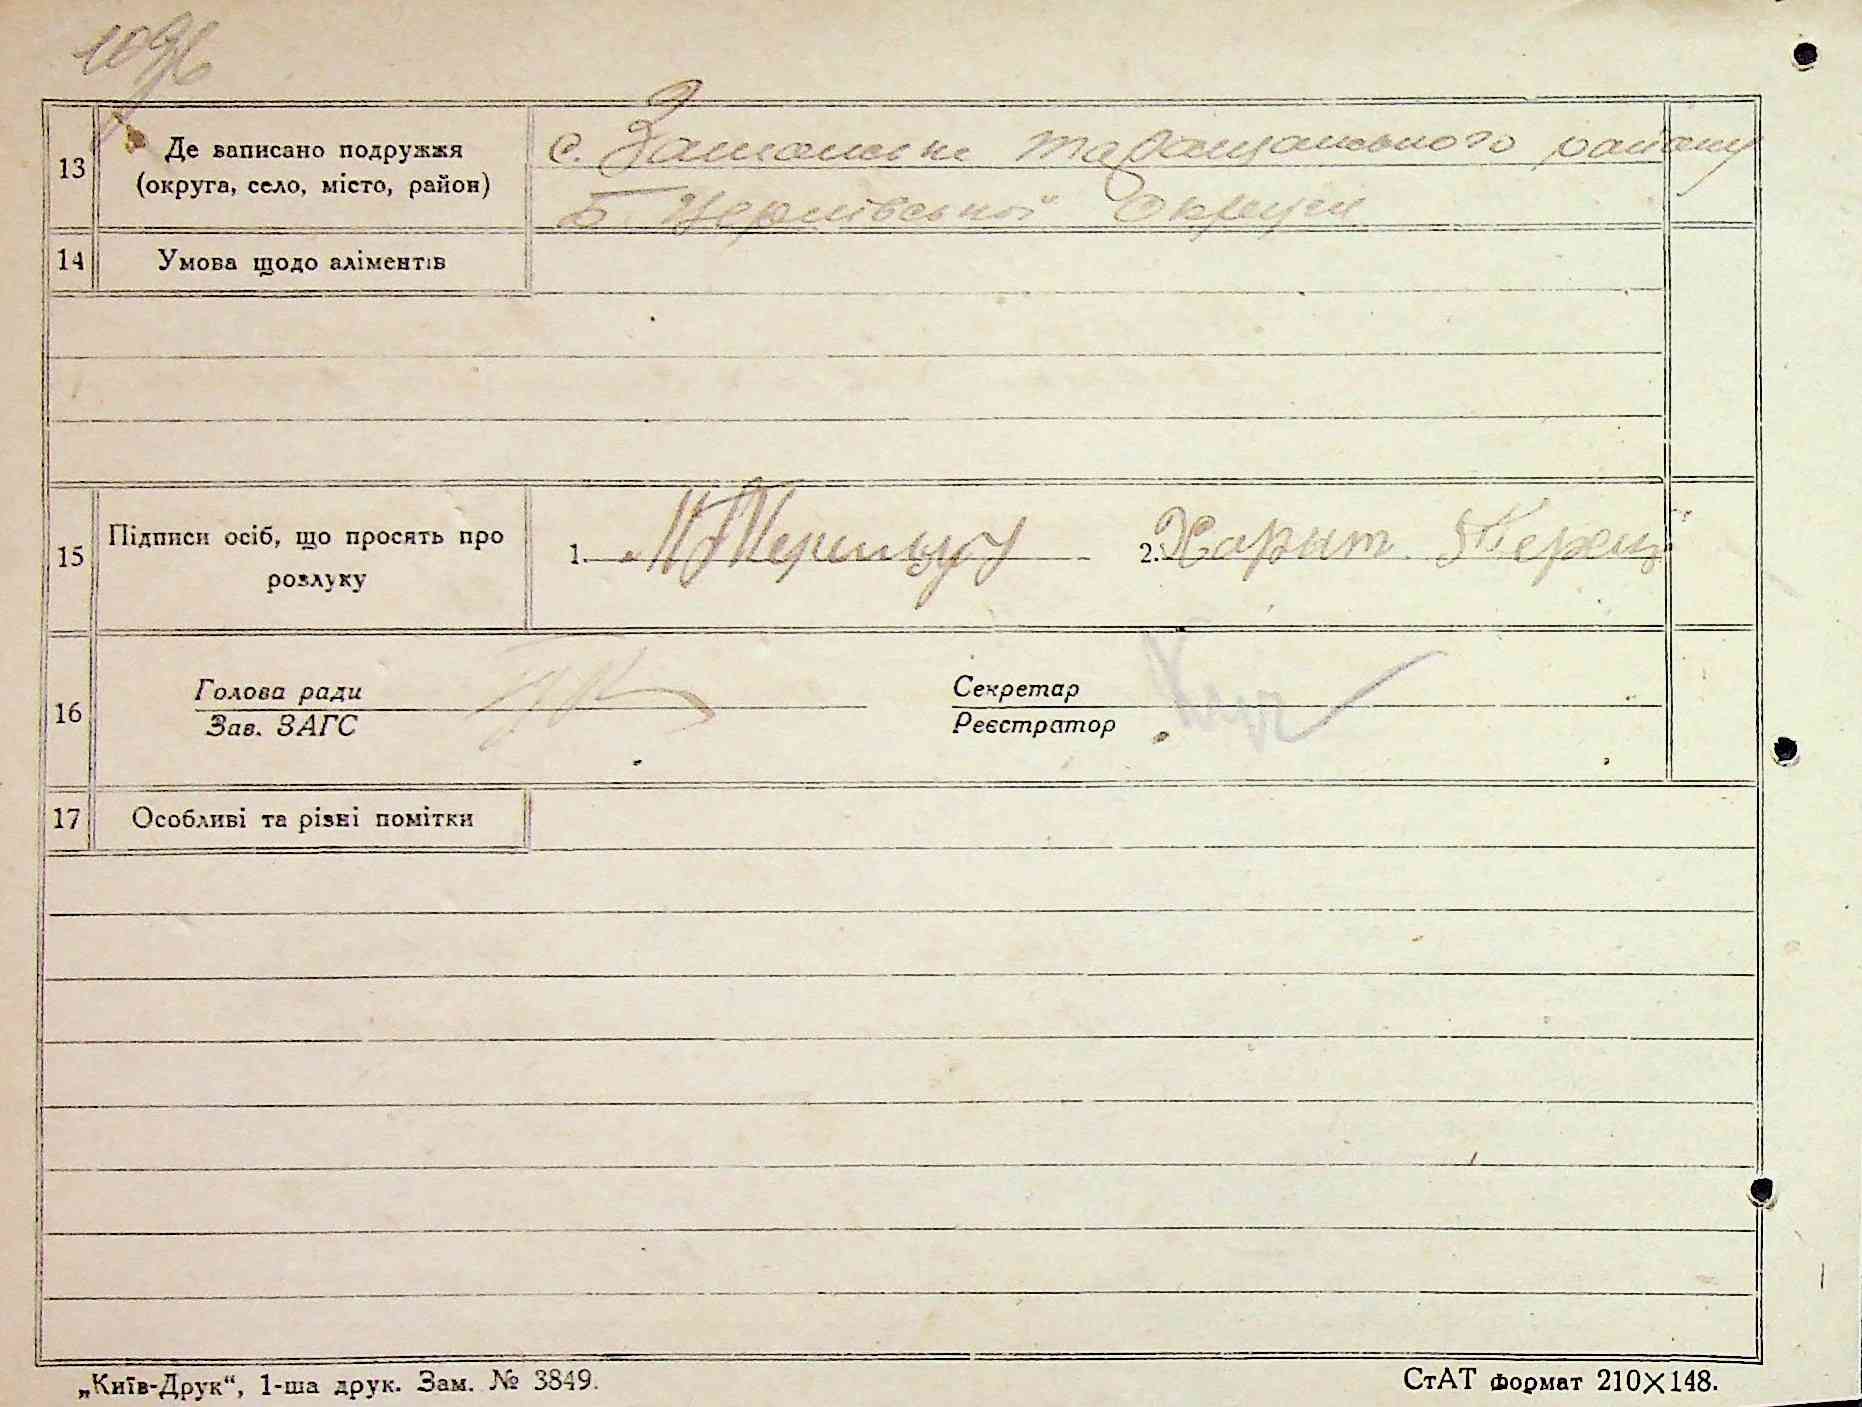 1096
13
Де записано подружжя
(округа, село, місто, район)
с. Таращанського району
Б. Церківської Округи
14
Умова щодо аліментів
15
Підписи осіб, що просять про
розлуку
1.
2. Харит.
16
Голова ради
Зав. ЗАГС
Секретар
Реєстратор
17
Особливі та різні помітки
„Київ-Друк“, 1-ша друк. Зам. № 3849.
СтАТ формат 210×148.